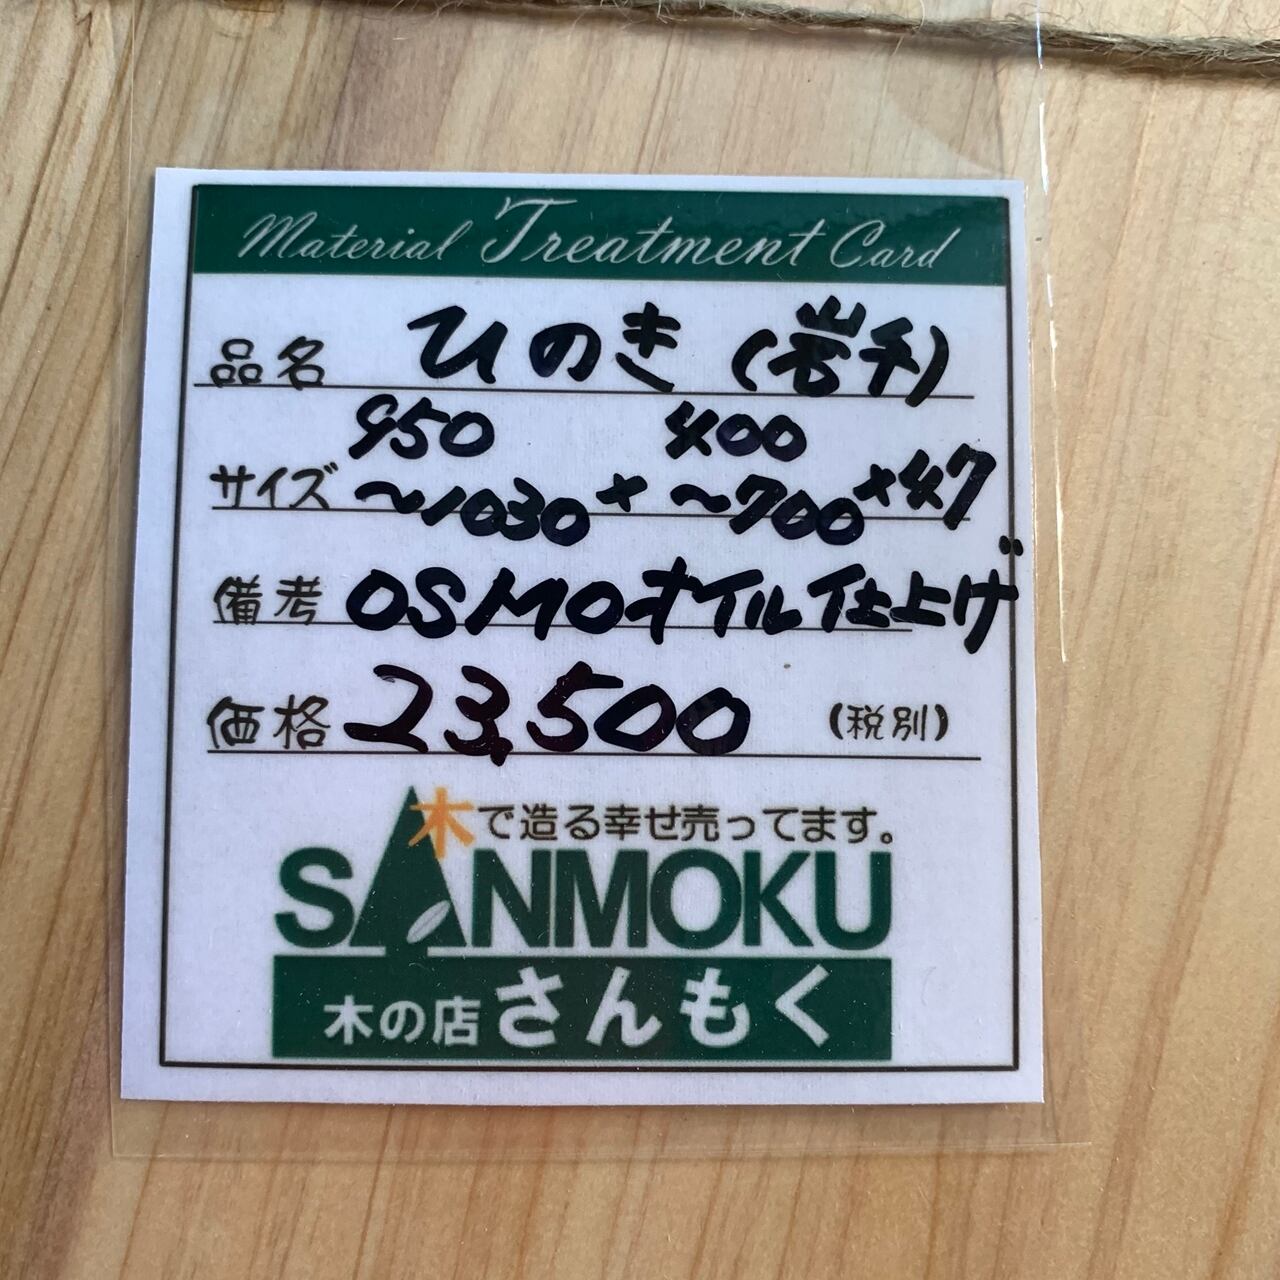 Material Treatment Card
品名 ひのき (岩手)
950 400
サイズ 〜1030 × 〜700 × 47
備考 OSMOオイル仕上げ
価格 23,500 (税別)
木で造る幸せ売ってます。
SANMOKU
木の店さんもく